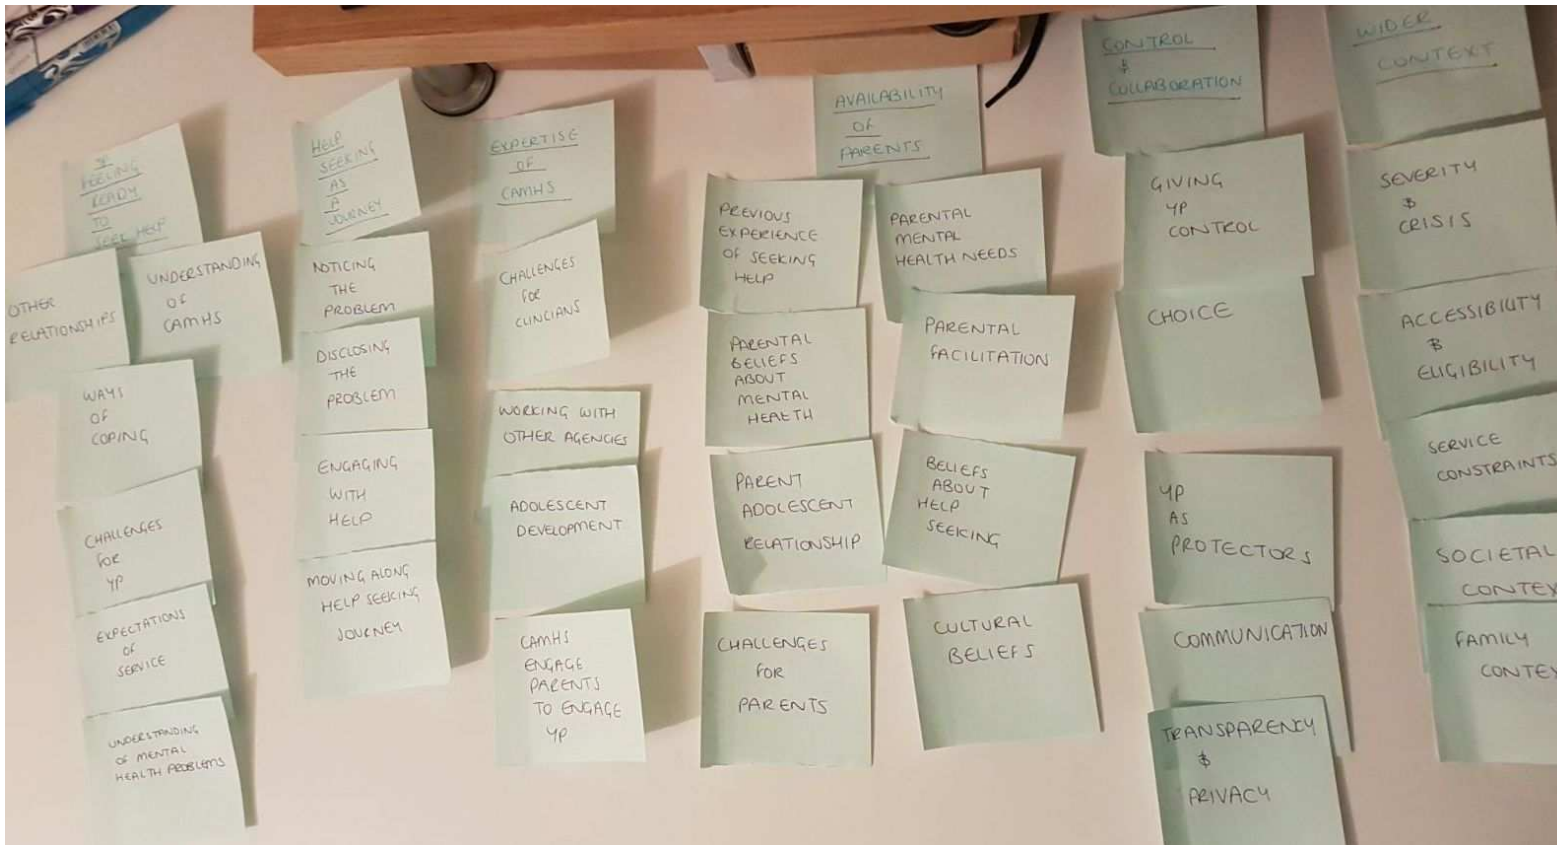 YP
FEELING
READY
TO
SEEK HELP
OTHER
RELATIONSHIPS
UNDERSTANDING
OF
CAMHS
WAYS
OF
COPING
CHALLENGES
FOR
YP
EXPECTATIONS
OF
SERVICE
UNDERSTANDING
OF MENTAL
HEALTH PROBLEMS
HELP
SEEKING
AS
A
JOURNEY
NOTICING
THE
PROBLEM
DISCLOSING
THE
PROBLEM
ENGAGING
WITH
HELP
MOVING ALONG
HELP SEEKING
JOURNEY
EXPERTISE
OF
CAMHS
CHALLENGES
FOR
CLINCIANS
WORKING WITH
OTHER AGENCIES
ADOLESCENT
DEVELOPMENT
CAMHS
ENGAGE
PARENTS
TO ENGAGE
YP
AVAILABILITY
OF
PARENTS
PREVIOUS
EXPERIENCE
OF SEEKING
HELP
PARENTAL
BELIEFS
ABOUT
MENTAL
HEALTH
PARENT
ADOLESCENT
RELATIONSHIP
CHALLENGES
FOR
PARENTS
PARENTAL
MENTAL
HEALTH NEEDS
PARENTAL
FACILITATION
BELIEFS
ABOUT
HELP
SEEKING
CULTURAL
BELIEFS
CONTROL
&
COLLABORATION
GIVING
YP
CONTROL
CHOICE
YP
AS
PROTECTORS
COMMUNICATION
TRANSPARENCY
&
PRIVACY
WIDER
CONTEXT
SEVERITY
&
CRISIS
ACCESSIBILITY
&
ELIGIBILITY
SERVICE
CONSTRAINTS
SOCIETAL
CONTEX
FAMILY
CONTEX